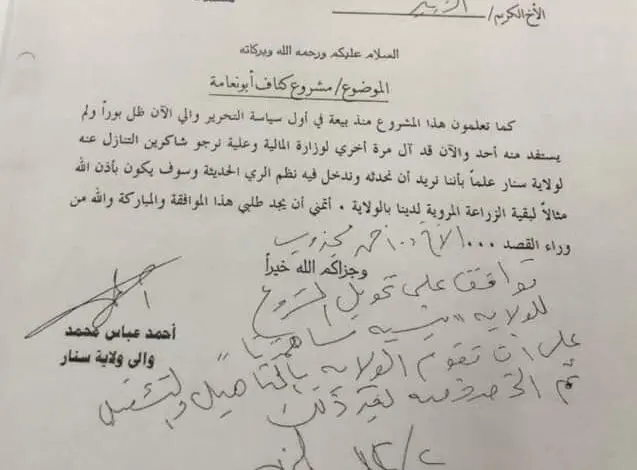 الأخ الكريم/ الزبير
السلام عليكم ورحمه الله وبركاته
الموضوع/ مشروع كناف أبونعامة
كما تعلمون هذا المشروع منذ بيعة في أول سياسة التحرير والي الآن ظل بوراً ولم
يستفد منه أحد والآن قد آل مرة أخري لوزارة المالية وعلية نرجو شاكرين التنازل عنه
لولاية سنار علماً بأننا نريد أن نحدثه وندخل فيه نظم الري الحديثة وسوف يكون بأذن الله
مثالاً لبقية الزراعة المروية لدينا بالولاية . أتمني أن يجد طلبي هذا الموافقة والمباركة والله من
وراء القصد ... الأخ د. أحمد مجذوب
وجزاكم الله خيراً
نوافق على تحويل المشروع
للولاية
أحمد عباس محمد
والى ولاية سنار
على ان تقوم الولاية بالتأهيل والتشغيل
ثم